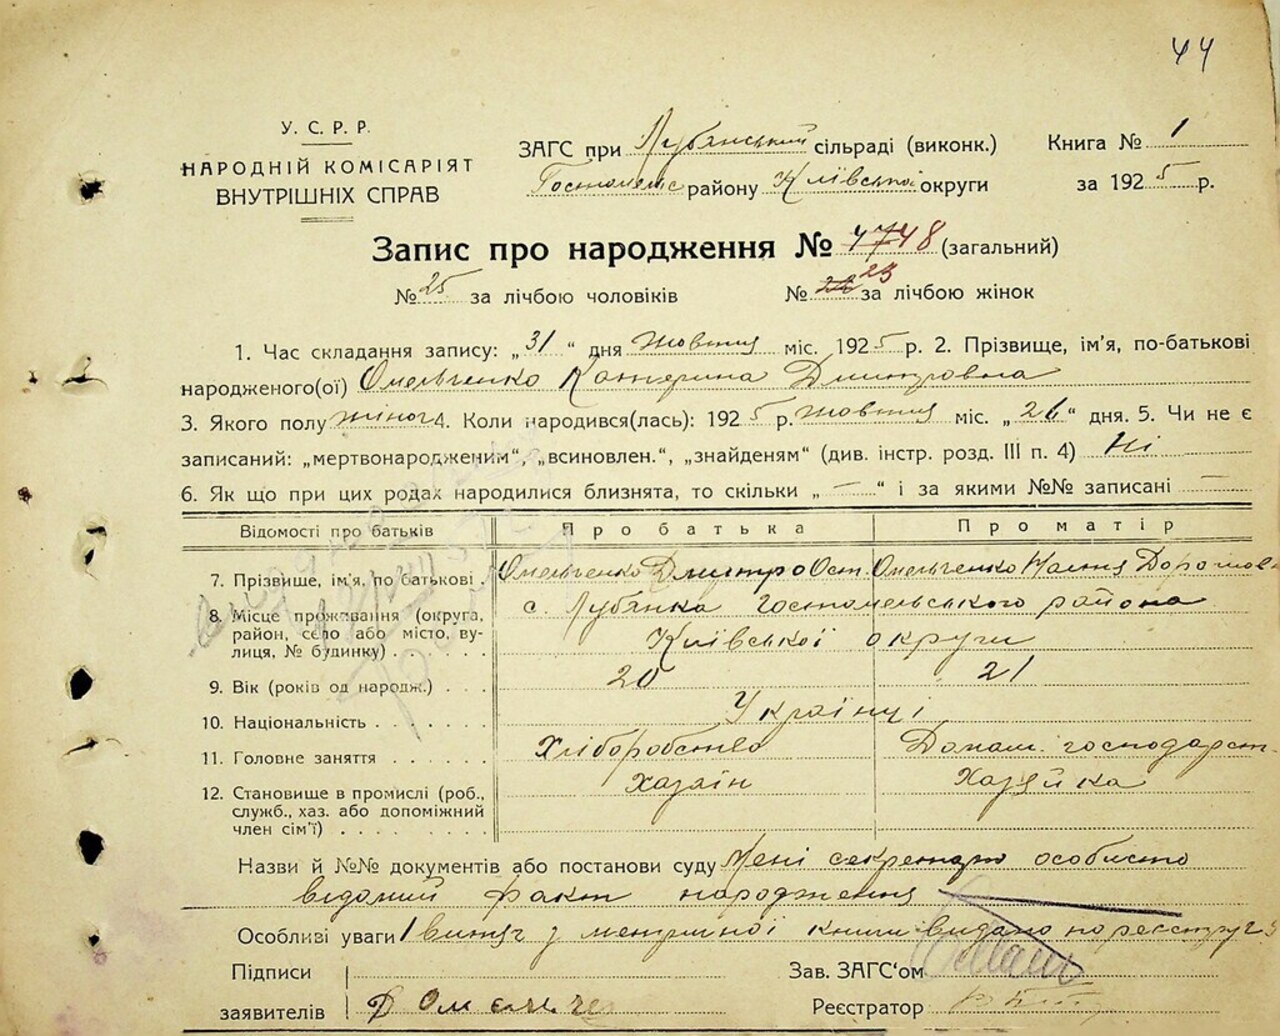 44
У. С. Р. Р.
НАРОДНІЙ КОМІСАРІЯТ
ВНУТРІШНІХ СПРАВ
ЗАГС при Лубянський сільраді (виконк.)
Гостомельс району Київської округи
Книга № 1
за 1925 р.
Запис про народження № 48 (загальний)
№ 25 за лічбою чоловіків № 23 за лічбою жінок
1. Час складання запису: „31“ дня жовтня міс. 1925 р. 2. Прізвище, ім'я, по-батькові
народженого(ої) Омельченко Катерина Дмитровна
3. Якого полу жіноч 4. Коли народився(лась): 1925 р. жовтня міс. „26“ дня. 5. Чи не є
записаний: „мертвонародженим“, „всиновлен.“, „знайденям“ (див. інстр. розд. III п. 4) Ні
6. Як що при цих родах народилися близнята, то скільки „—“ і за якими №№ записані —
Відомості про батьків Про батька Про матір
7. Прізвище, ім'я, по батькові . Омельченко Дмитро Ост. Омельченко Настя
8. Місце проживання (округа, район, село або місто, вулиця, № будинку) . . . . . . с. Лубянка Гостомельського района
Київської округи
9. Вік (років од народж.) . . . 20 21
10. Національність . . . . . . . Українці
11. Головне заняття . . . . . . Хліборобство Домаш. господарст.
12. Становище в промислі (роб., служб., хаз. або допоміжний член сім'ї) . . . . . . . . Хазяїн Хазяйка
Назви й №№ документів або постанови суду Мені секретарю особисто
відомий факт народження
Особливі уваги 1 витяг з метричної книги видано по реєстру
Підписи
заявителів Д Омельче
Зав. ЗАГС'ом
Реєстратор